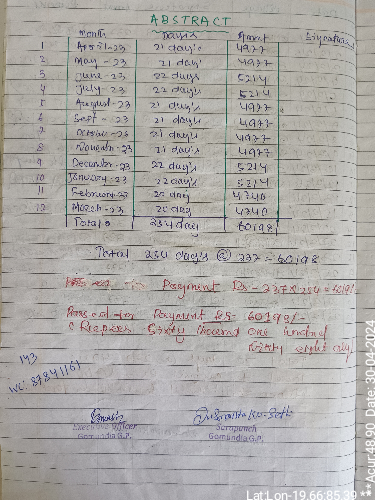 ABSTRACT
Month Day's Amout Signature
1 April-23 21 day's 4977
2 May-23 21 day' 4977
3 June-23 22 day's 5214
4 July-23 22 day's 5214
5 August-23 21 day's 4977
6 Sept-23 21 day's 4977
7 October-23 21 day's 4977
8 November-23 21 day's 4977
9 December-23 22 day's 5214
10 January-23 22 day's 5214
11 February-23 20 day 4740
12 March-23 20 day 4740
Total = 234 day 60198
Total 234 day's @ 237 = 60198
Payment Rs - 237 x 254 = 60198
Passed for Payment Rs- 60198/-
( Rupees Sixty thousand one hundred
Ninety eight only)
143
VC. 87841161
Executive Officer
Gomundia G.P.
Sarapanch
Gomundia G.P.
Lat Lon-19.66:85.39 ** Acur:48.90 Date: 30-04-2024